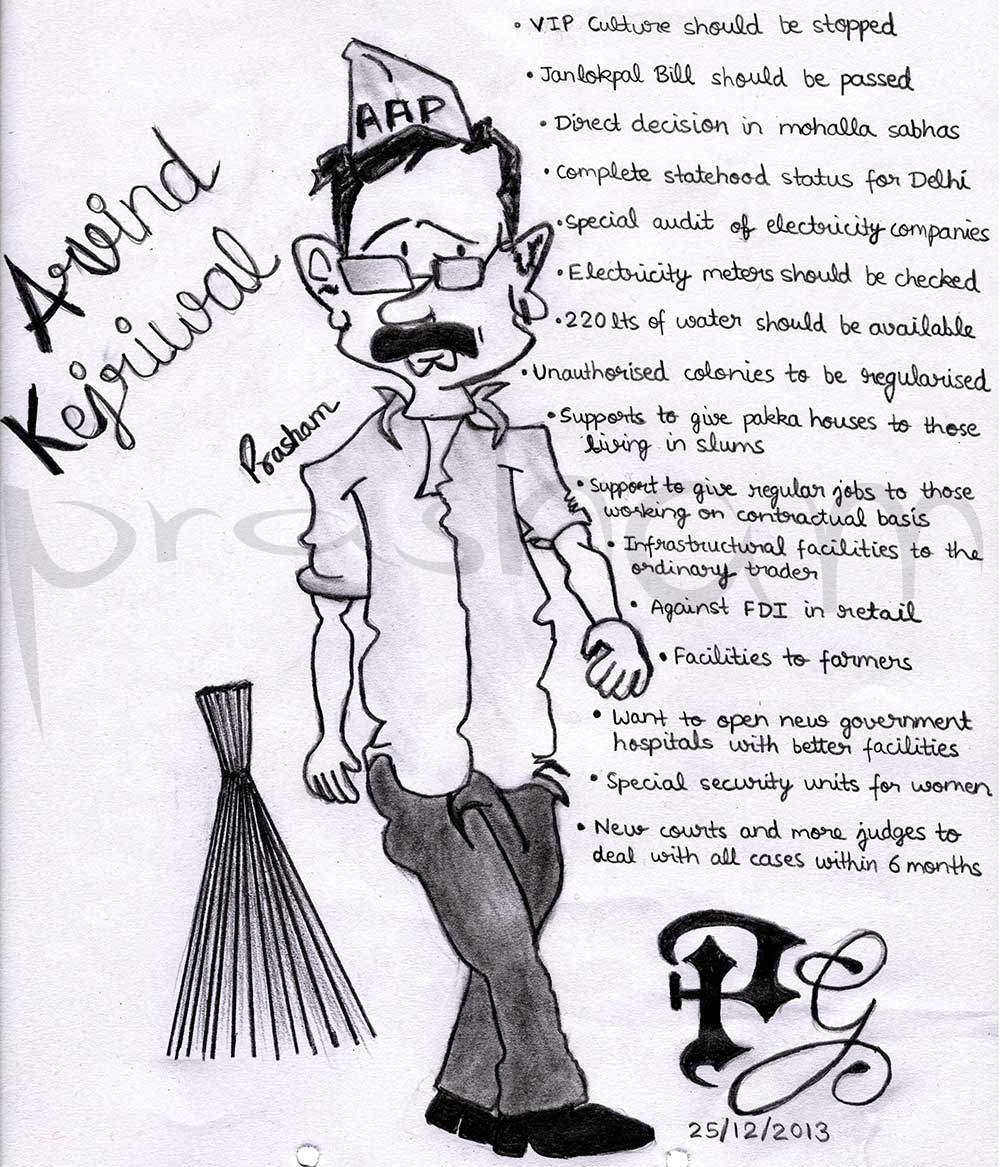 • VIP Culture should be stopped
• Janlokpal Bill should be passed
• Direct decision in mohalla sabhas
• Complete statehood status for Delhi
• Special audit of electricity companies
• Electricity meters should be checked
• 220 lts of water should be available
• Unauthorised colonies to be regularised
• Supports to give pakka houses to those
living in slums
• Support to give regular jobs to those
working on contractual basis
• Infrastructural facilities to the
ordinary trader
• Against FDI in retail
• Facilities to farmers
• Want to open new government
hospitals with better facilities
• Special security units for women
• New courts and more judges to
deal with all cases within 6 months
AAP
Arvind
Kejriwal
Prasham
prasham
PG
25/12/2013